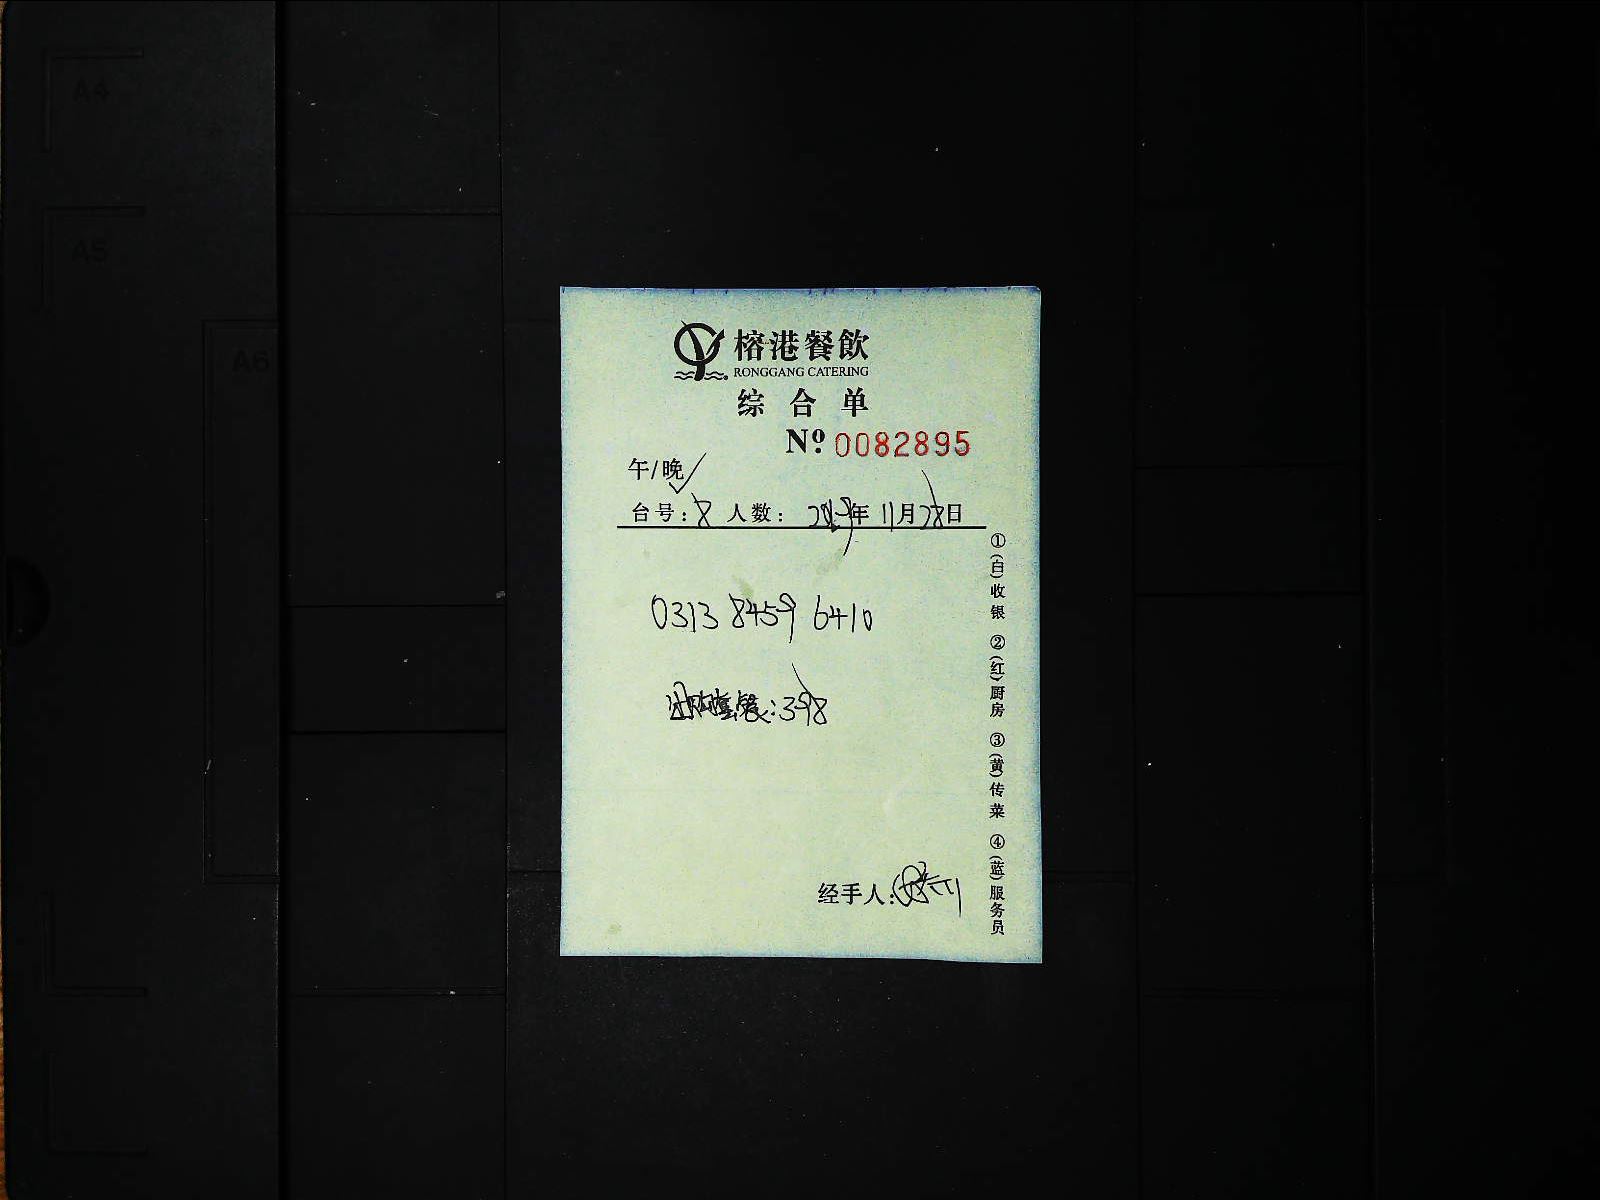 A4
A5
A6
榕港餐飲
RONGGANG CATERING
综合单
Nº 0082895
午/晚✓
台号:8 人数: 2019年11月28日
0313 8459 6410
团购套餐:398
经手人:
①(白)收银 ②(红)厨房 ③(黄)传菜 ④(蓝)服务员